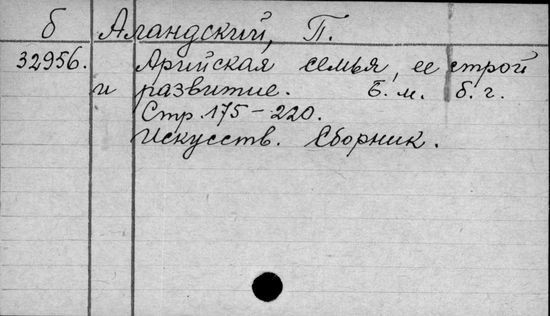 б Аландский, П.
32956. Арийская семья, ее строй
и развитие. Б. м. б. г.
Стр. 175-220.
Искусств. Сборник.